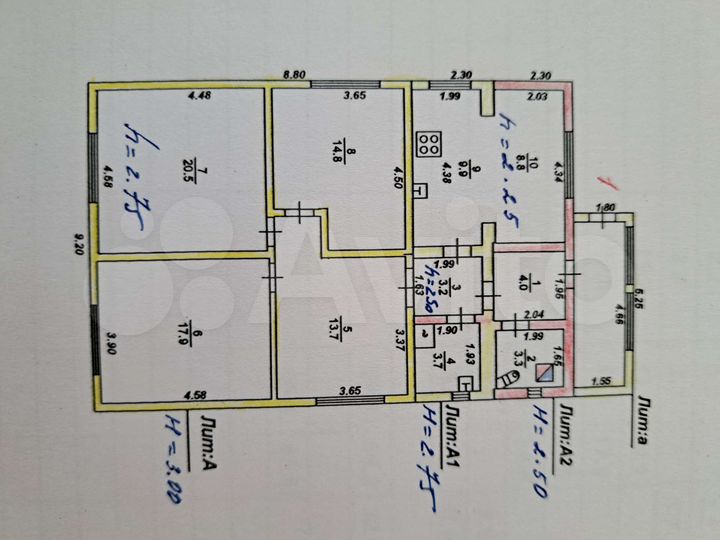 8.80
2.30
2.30
4.48
3.65
1.99
2.03
h=2.75
7
20.5
4.58
8
14.8
4.50
9
9.9
4.38
h=2.25
10
8.8
4.34
9.20
1
1.80
1.99
h=2.50
3
3.2
1.63
1
4.0
1.95
2.04
5.25
4.66
6
17.9
3.90
4.58
5
13.7
3.37
3.65
1.90
4
3.7
1.93
1.99
2
3.3
1.65
1.55
Лит:А
H=3.00
Лит:А1
H=2.75
Лит:А2
H=2.50
Лит:а
Avito